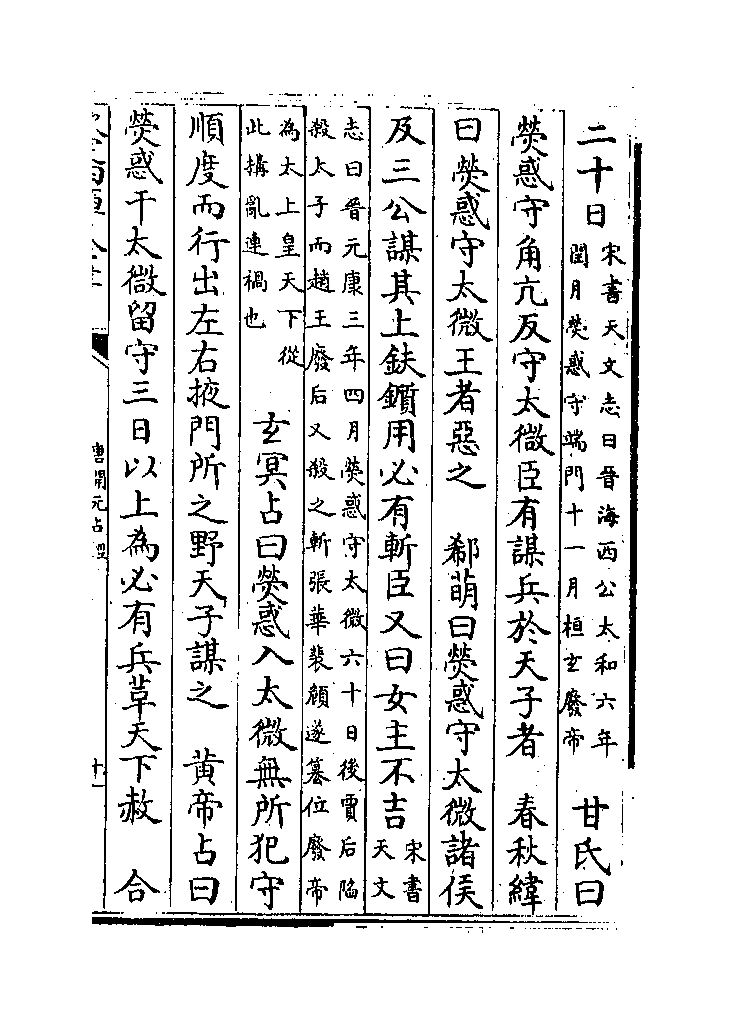 二十日宋書天文志曰晉海西公太和六年閏月熒惑守端門十一月桓玄廢帝　甘氏曰
熒惑守角亢反守太微臣有謀兵於天子者　春秋緯
曰熒惑守太微王者惡之　郗萌曰熒惑守太微諸侯
及三公謀其上鈇鑕用必有斬臣又曰女主不吉宋書天文
志曰晉元康三年四月熒惑守太微六十日後賈后陷殺太子而趙王廢后又殺之斬張華裴頠遂簒位廢帝
為太上皇天下從此搆亂連禍也　玄冥占曰熒惑入太微無所犯守
順度而行出左右掖門所之野天子謀之　黄帝占曰
熒惑干太微留守三日以上為必有兵革天下赦　合
唐開元占經
十一